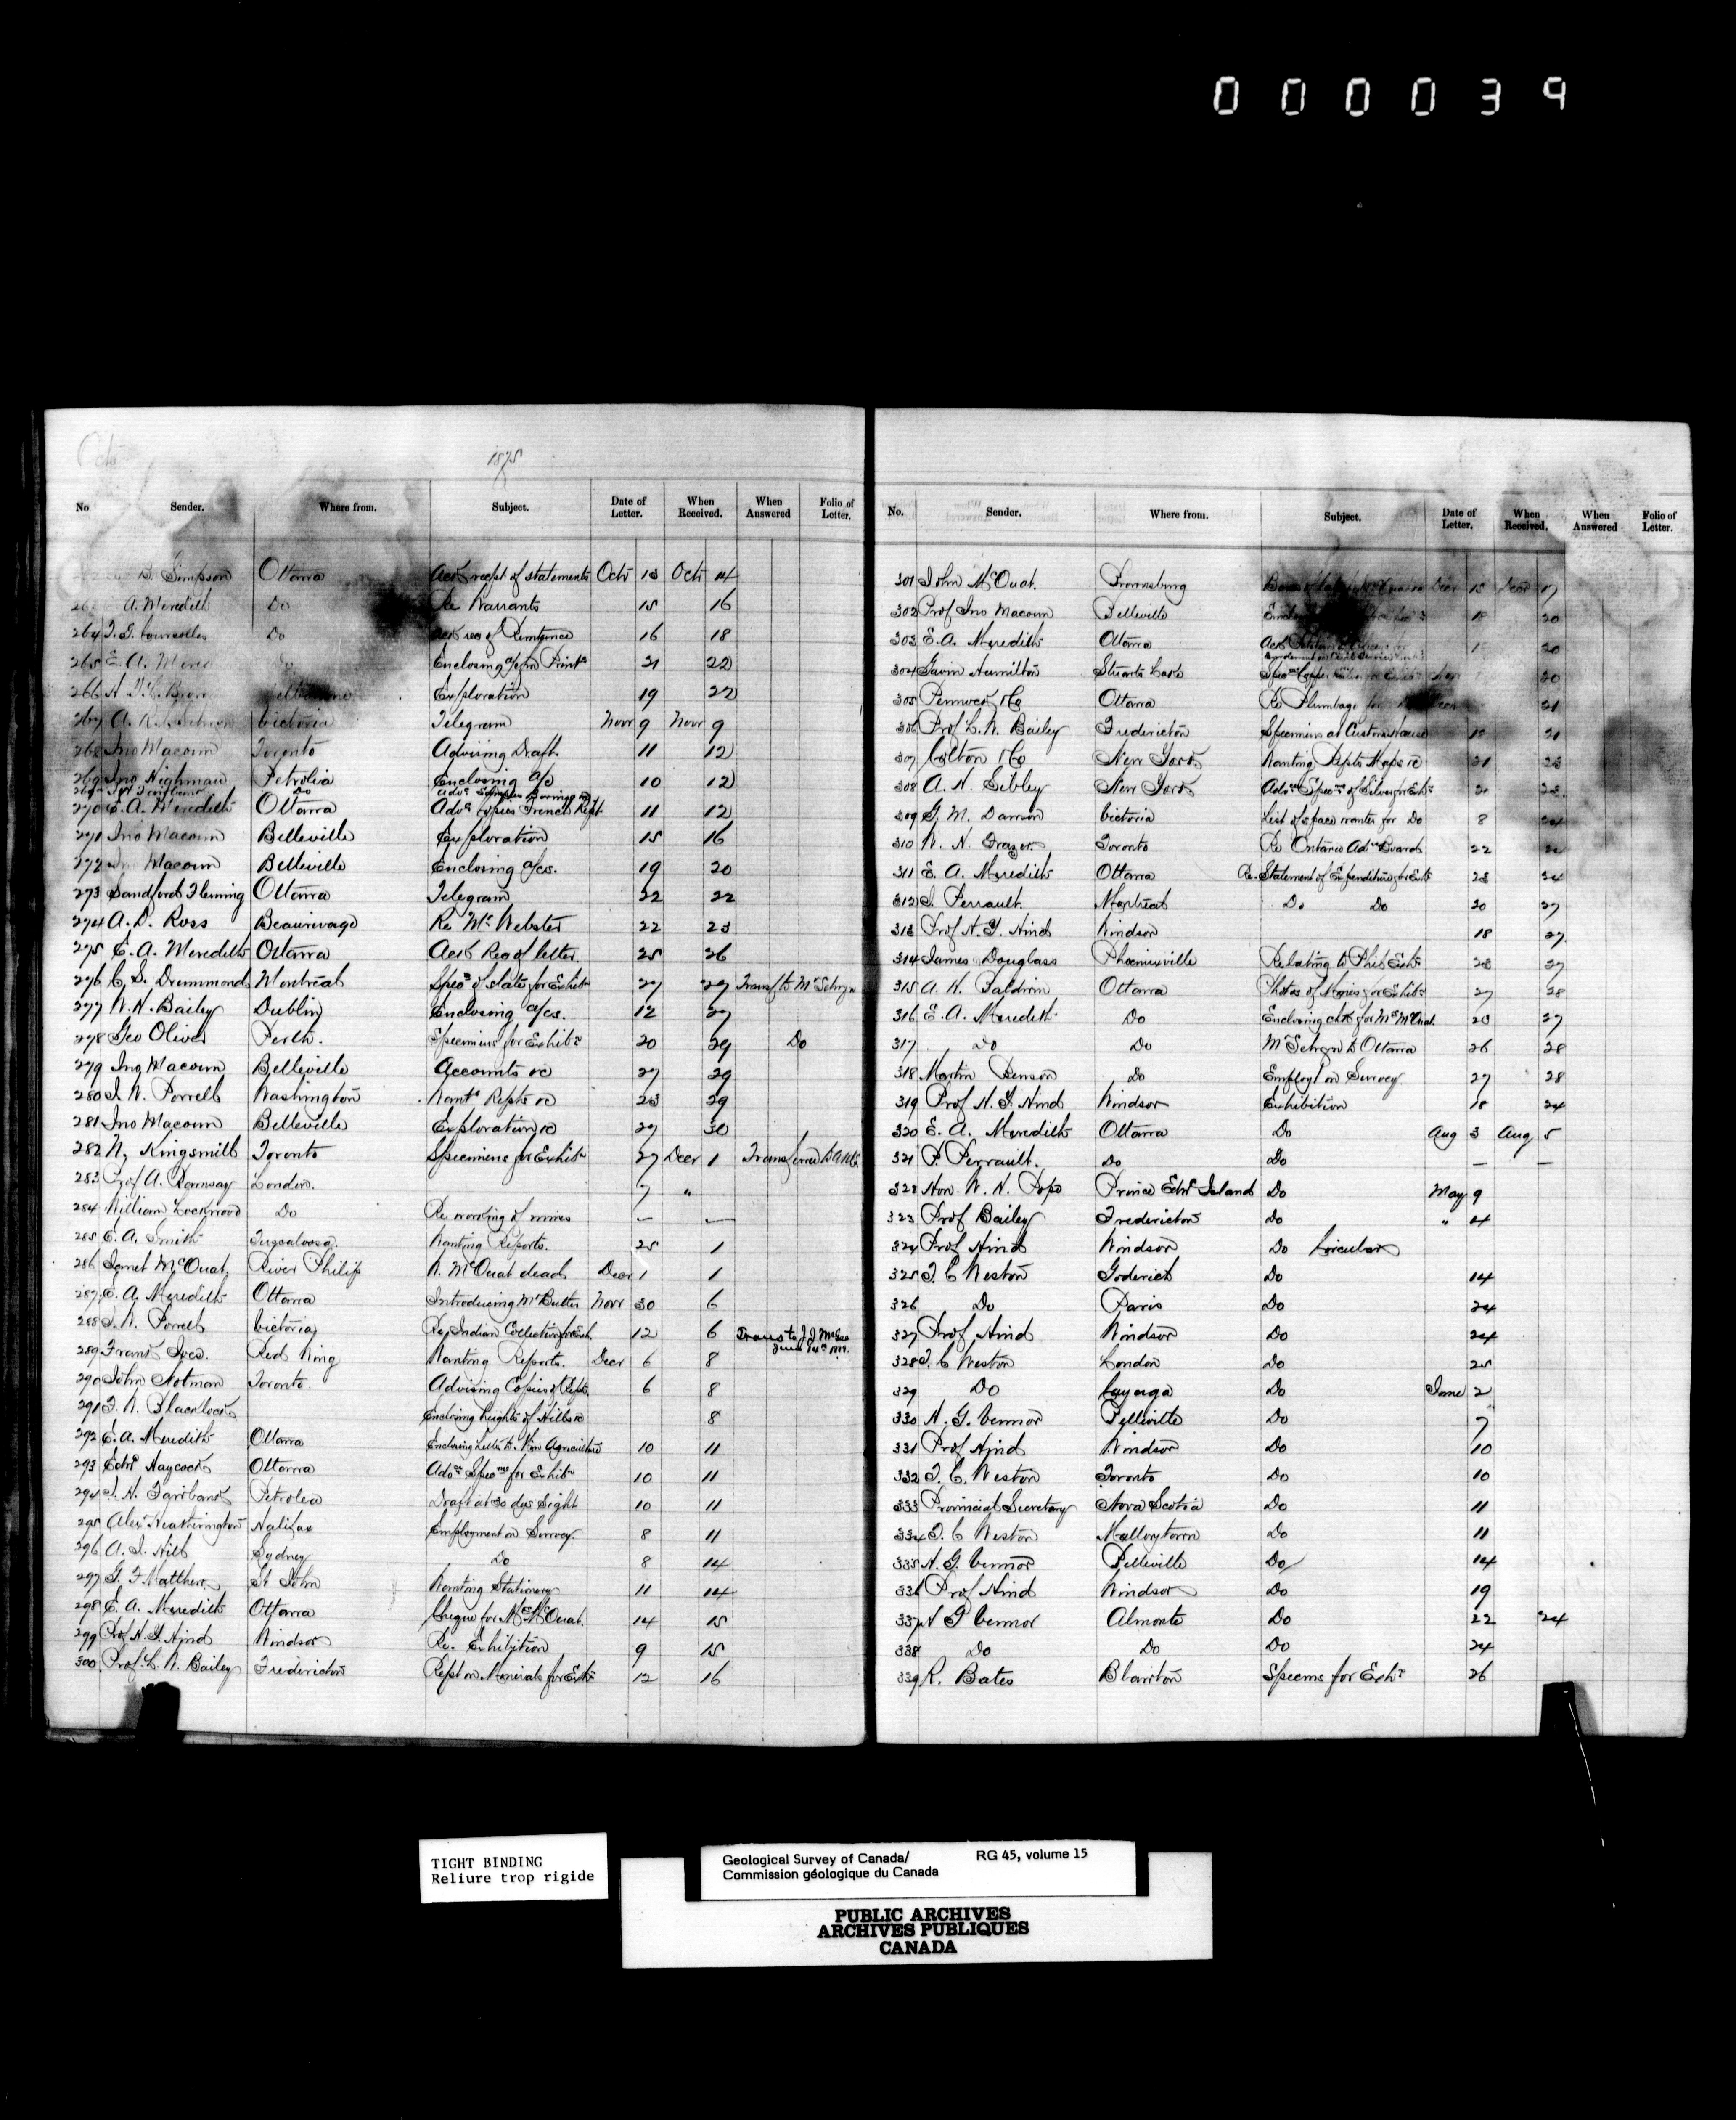 000039
Octr
1875
No Sender. Where from. Subject. Date of Letter. When Received. When Answered Folio of Letter.
Simpson Ottawa Ack recpt of statements Octr 13 Octr 14
A. Meredith Do Re Warrants 15 16
264 Do Ack rec of Remtence 16 18
265 E. A. Enclosing a/c fm Printr 21 22
266 Exploration 19 22
267 A. Victoria Telegram Novr 9 Novr 9
268 Jno Macoun Toronto Advising Draft. 11 12
269 Jno Highman Petrolia Enclosing a/c 10 12
Do Advg Samples Borings
270 E. A. Meredith Ottawa Advg Copies French Rept 11 12
271 Jno Macoun Belleville Exploration 15 16
272 Macoun Belleville Enclosing a/cs. 19 20
273 Sandford Fleming Ottawa Telegram 22 22
274 A. D. Ross Beaurivage Re Mr Webster 22 23
275 E. A. Meredith Ottawa Ack Rec of letter. 25 26
276 C. S. Drummond Montreal Specs of slate for Exhibn 27 29 Transf to Mr Selwyn
277 W. H. Bailey Dublin Enclosing a/cs. 12 27
278 Geo Oliver Perth. Specimens for Exhibn 20 29 Do
279 Jno Macoun Belleville Accounts &c 27 29
280 J. W. Powell Washington Wants Repts &c 23 29
281 Jno Macoun Belleville Exploration &c 29 30
282 N. Kingsmill Toronto Specimens for Exhibn 27 Decr 1 Transferred to
283 Prof A. Ramsay London. 7 "
284 William Lockwood Do Re working of mines — —
285 E. A. Smith Tuscaloosa. Wanting Reports. 25 1
286 Janet McOuat River Philip W. McOuat dead Decr 1 1
287 E. A. Meredith Ottawa Introducing Mr Butler Novr 30 6
288 J. W. Powell Victoria Re Indian Collection for Exh. 12 6 Trans to J J McGee
289 Frank Ives. Red Wing Wanting Reports. Decr 6 8
290 John Notman Toronto. Advising Copies of Repts 6 8
291 J. R. Blacklock Enclosing heights of Hills &c 8
292 E. A. Meredith Ottawa Enclosing Letter to Min Agriculture 10 11
293 Edwd Haycock Ottawa Advg Specms for Exhibn 10 11
294 J. H. Fairbank Petrolea Draft at 30 dys Sight 10 11
295 Alex Heatherington Halifax Employment on Survey. 8 11
296 A. J. Hill Sydney Do 8 14
297 G. F Matthew St John Wanting Stationery 11 14
298 E. A. Meredith Ottawa Cheque for Mrs McOuat. 14 15
299 Prof H. Y. Hind Windsor Re. Exhibition 9 15
300 Prof. L. W. Bailey Fredericton Rept on Minerals for Exhn 12 16
No. Sender. Where from. Subject. Date of Letter. When Received. When Answered Folio of Letter.
301 John McOuat. Brownsburg Decr 15 Decr 17
302 Prof Jno Macoun Belleville 18 20
303 E. A. Meredith Ottawa Ack 20
304 Gavin Hamilton Stuarts Lake 20
305 Pennock & Co Ottawa Re Plumbage for 21
306 Prof L. W. Bailey Fredericton Specimens at Customs House 18 21
307 Colton & Co New York Wanting Repts Maps &c 21 23
308 A. H. Sibley New York Advg Specms of Silver for Exhn 21 23
309 G. M. Dawson Victoria List of space wanted for Do 8 24
310 W. H. Frazer Toronto Re Ontario Advy Board 22
311 E. A. Meredith Ottawa Re. Statement of Expenditure for Exhn 23 24
312 J. Perrault. Montreal Do Do 20 27
313 Prof H. Y. Hind Windsor 18 27
314 James Douglass Phoenixville Relating to Phil Exhn 23 27
315 A. H. Baldwin Ottawa Photos of Mines for Exhibn 27 28
316 E. A. Meredith Do Enclosing chk for Mrs McOuat. 23 27
317 Do Do Mr Selwyn to Ottawa 26 28
318 Martin Benson Do Employt on Survey. 27 28
319 Prof H. Y. Hind Windsor Exhibition 18 24
320 E. A. Meredith Ottawa Do Aug 3 Aug 5
321 P. Perrault. Do Do — —
322 Hon. W. H. Pope Prince Edwd Island Do May 9
323 Prof Bailey Fredericton Do " 14
324 Prof Hind Windsor Do Circular
325 T. C Weston Goderich Do 14
326 Do Paris Do 24
327 Prof Hind Windsor Do 24
328 T. C Weston London Do 25
329 Do Cayuga Do June 2
330 H. G. Vennor Belleville Do 7
331 Prof Hind Windsor Do 10
332 T. C. Weston Toronto Do 10
333 Provincial Secretary Nova Scotia Do 11
334 T. C Weston Mallorytown Do 11
335 H. G. Vennor Belleville Do 14
336 Prof Hind Windsor Do 19
337 H G Vennor Almonte Do 22 24
338 Do Do Do 24
339 R. Bates Blairton Specms for Exhn 26
TIGHT BINDING
Reliure trop rigide
Geological Survey of Canada/ RG 45, volume 15
Commission géologique du Canada
PUBLIC ARCHIVES
ARCHIVES PUBLIQUES
CANADA